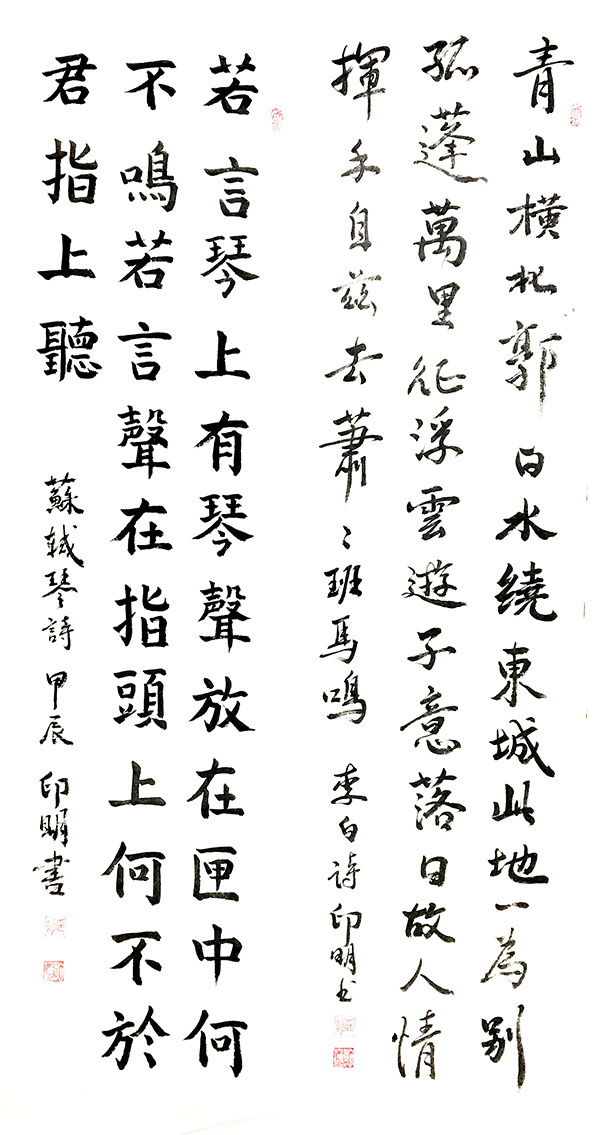 青山橫北郭白水繞東城此地一為別
孤蓬萬里征浮雲遊子意落日故人情
揮手自茲去蕭〻班馬鳴 李白詩 印明书
若言琴上有琴聲放在匣中何
不鳴若言聲在指頭上何不於
君指上聽
蘇軾琴詩 甲辰 印明書